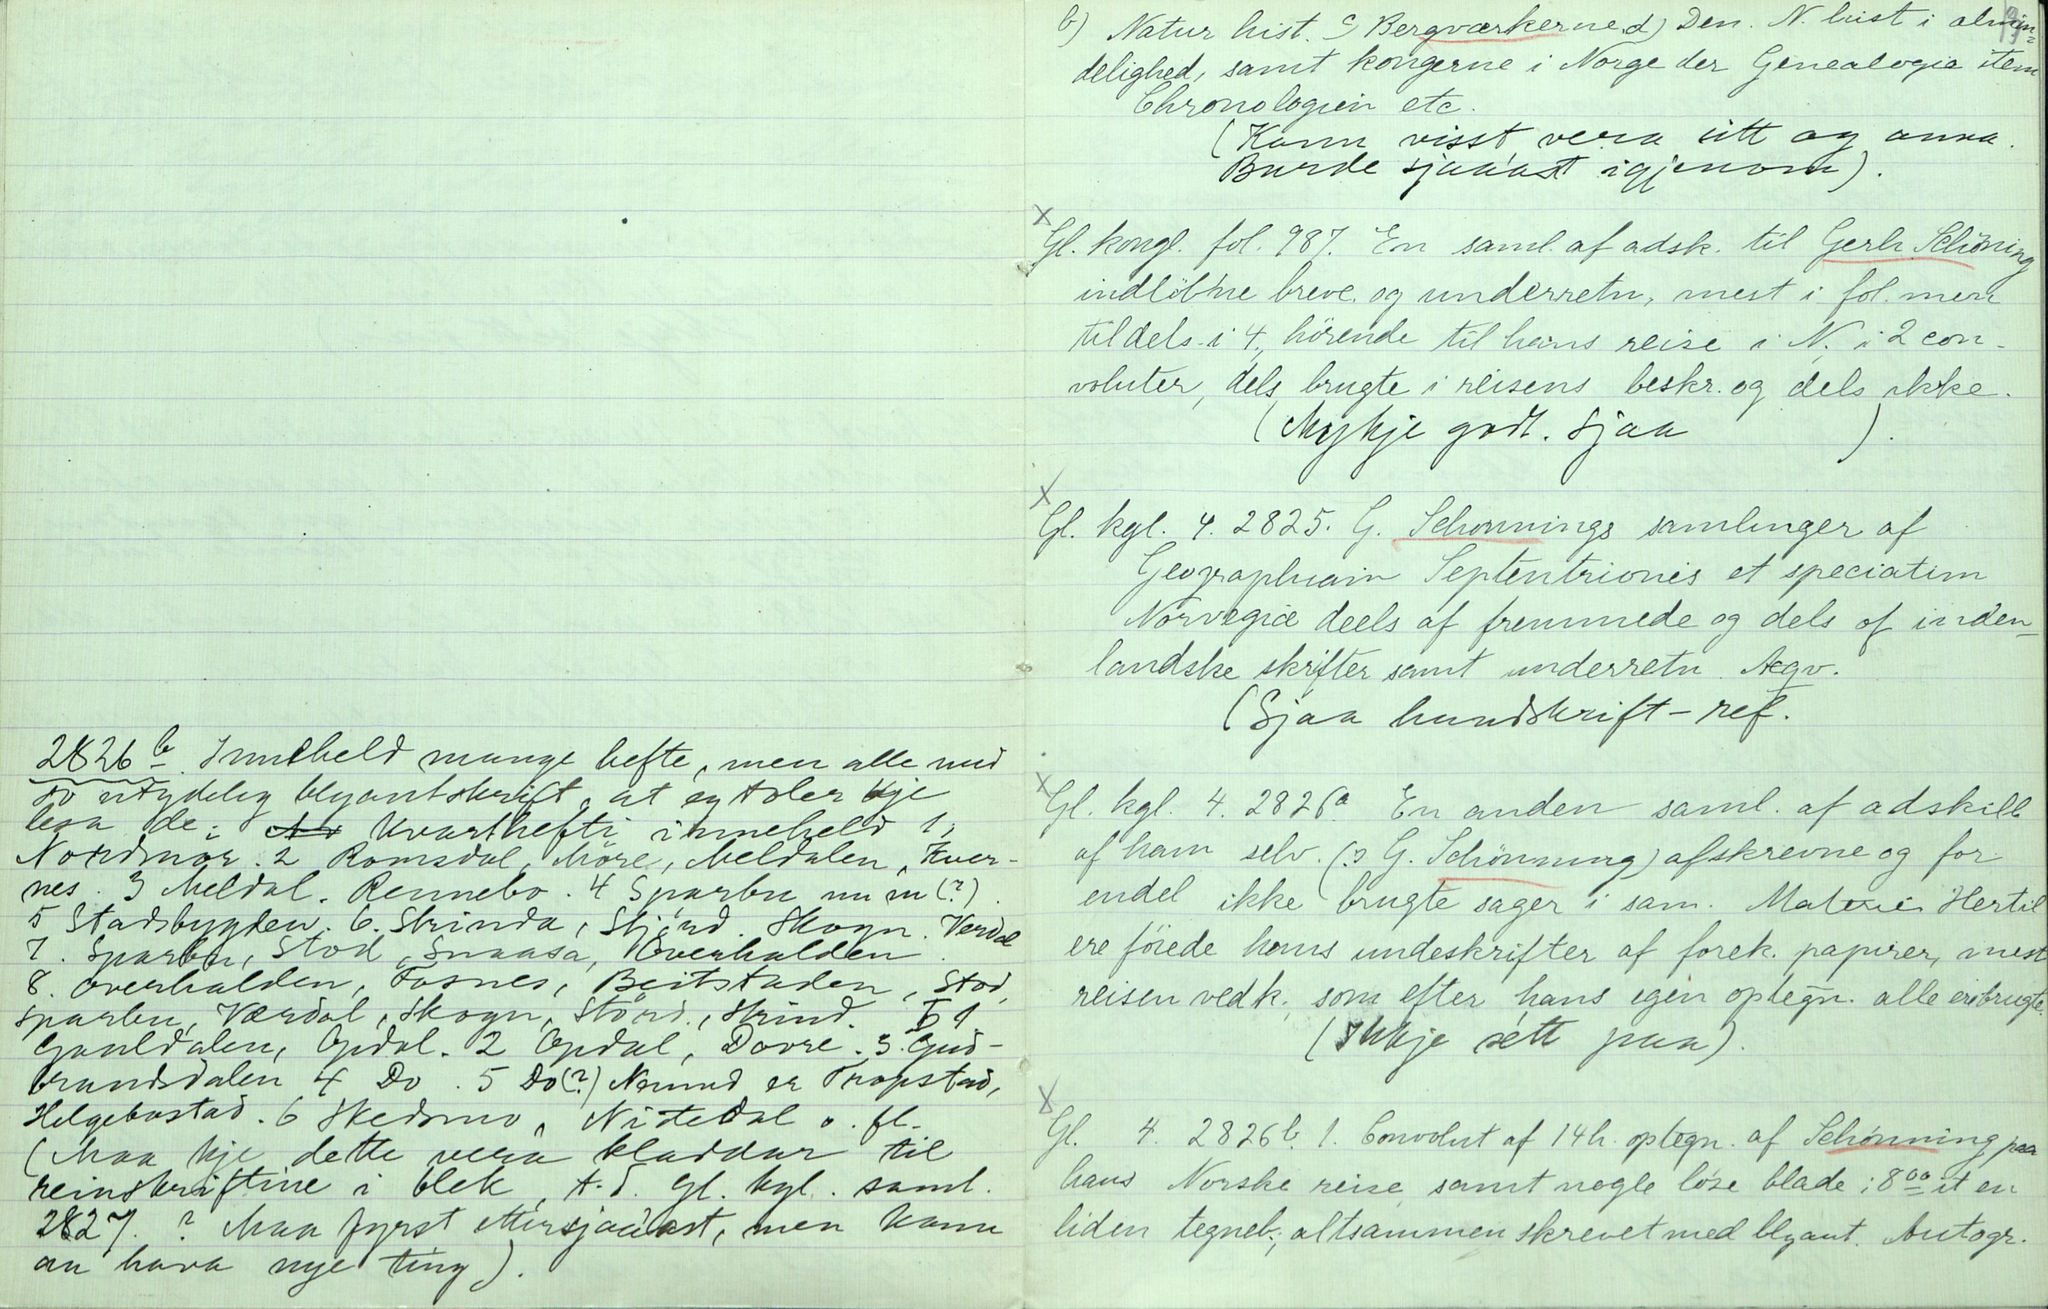 2826 b. Inneheld mange hefte, men alle med
so utydelig blyantskrift, at eg toler kje
lesa de. Kvarthefti inneheld 1,
Nordmør. 2 Romsdal, Møre, Meldalen, Kver-
nes. 3 Meldal. Rennebo. 4 Sparbu m m (?).
5 Stadsbygden. 6. Strinda, Stjørd. Skogn. Verdal
7. Sparbu, Stod, Snaasa, Overhalden.
8. Overhalden, Fosnes, Beitstaden, Stod,
Sparbu, Værdal, Skogn, Størd., Strind. 1
Gauldalen, Opdal. 2 Opdal, Dovre. 3 Gud-
brandsdalen 4 Do. 5 Do (?) Nemnd er Trøgstad,
Helgebostad. 6 Skedsmo, Nitedal o. fl.
(Maa kje dette vera kladdar til
reinskriftine i blek, t. d. Gl. kgl. saml.
2827. ? Maa fyrst ettersjaaast, men kann
au hava nye ting).
b) Natur hist. c) Bergværkerne. d) Den. N. hist i almin-
delighed, samt kongerne i Norge der Genealogie item
Chronologien etc.
(Kann visst vera eitt og anna.
Burde sjaaast igjenom).
x
Gl. kongl. fol. 987. En saml. af adsk. til Gerh. Schöning
indløbne breve og underretn, mest i fol. men
tildels i 4., hörende til hans reise i N. i 2 con-
voluter, dels brugte i reisens beskr. og dels ikke.
(Mykje godt. Sjaa ).
x
Gl. kgl. 4. 2825. G. Schønnings samlinger af
Geographiam Septentrionis et speciatim
Norvegiæ deels af fremmede og dels af inden-
landske skrifter samt underretn. Aegv.
(Sjaa hundskrift-ref.
x
Gl. kgl. 4. 2826a En anden saml. af adskill
af ham selv. (: G. Schønning) afskrevne og for
endel ikke brugte sager i sam. Materie Hertil
ere föiede hans undeskrifter af forsk. papirer, mest
reisen vedk., som efter hans egen optegn. alle ere brugte.
(Ikkje sett paa).
x
Gl. 4. 2826 b. 1. Convolut af 14 h. optegn. af Schønning paa
hans Norske reise, samt nogle løse blade i 8 og et en
liden tegneb., altsammen skrevet med blyant. Autogr.